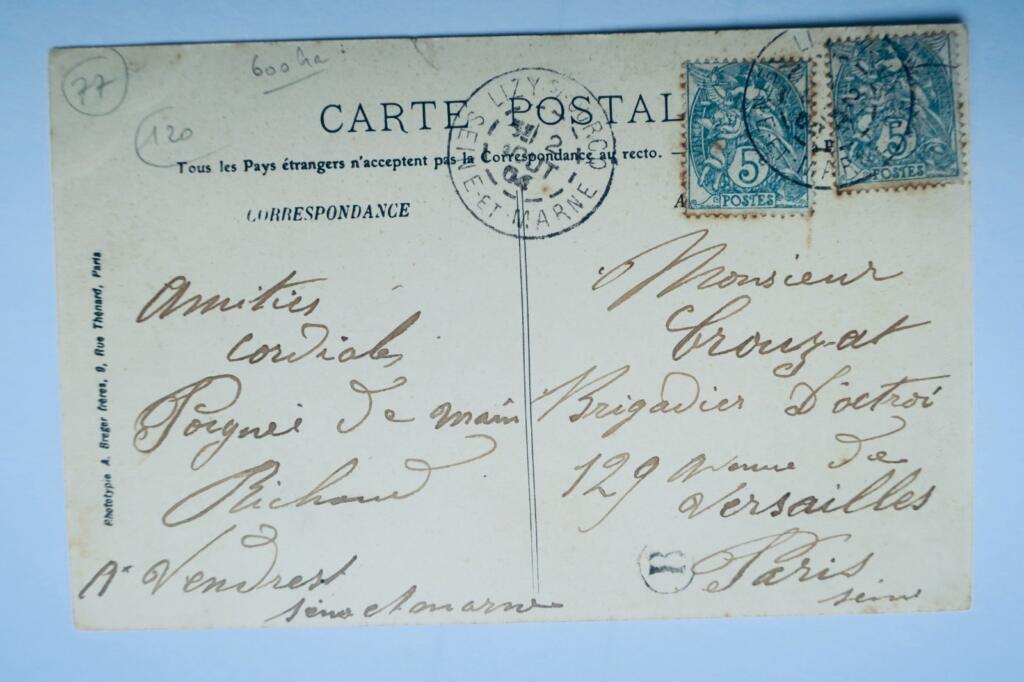 77
600 ha
120
CARTE POSTAL
Tous les Pays étrangers n'acceptent pas la Correspondance au recto.
CORRESPONDANCE
LIZY-S-OURCQ
2
AOUT
04
SEINE-ET-MARNE
5
POSTES
5
POSTES
LI
ET-MAR
Phototypie A. Breger frères, 9, Rue Thénard, Paris
Amitiés
cordiales
Poignée de main
Richard
A Vendrest
seine et marne
Monsieur
Crouzat
Brigadier D'octroi
129 Avenue de
Versailles
Paris
seine
B